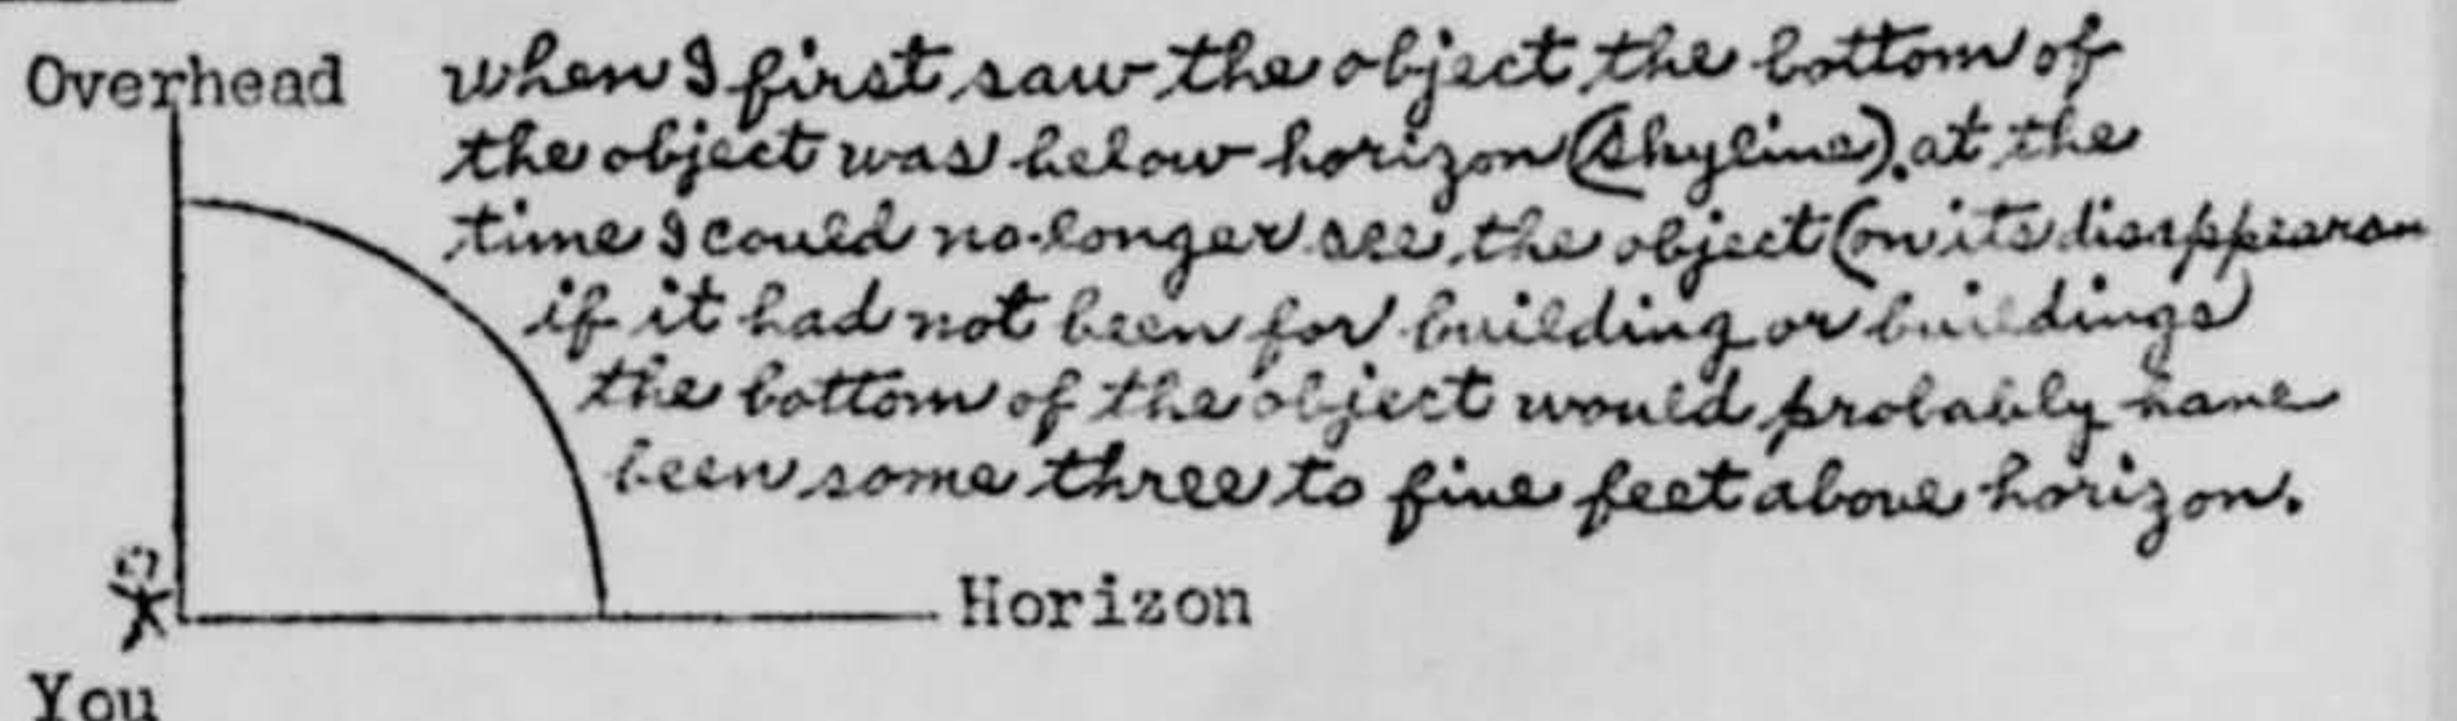 Overhead
when I first saw the object the bottom of
the object was below horizon (skyline). at the
time I could no-longer see, the object (on its disappearan
if it had not been for building or buildings)
the bottom of the object would probably have
been some three to five feet above horizon.
Horizon
You